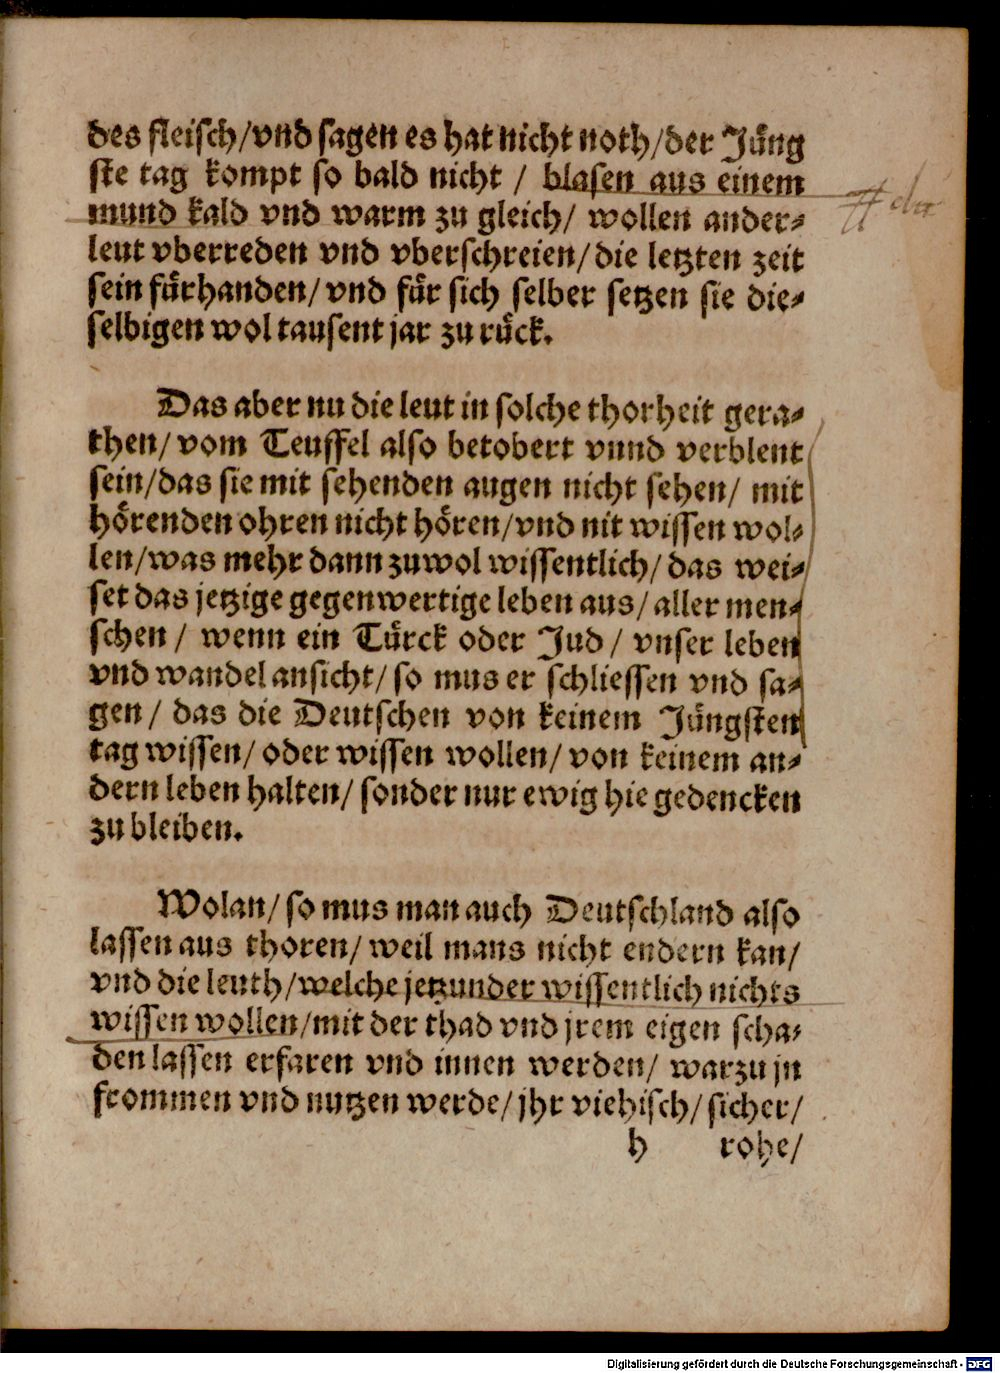 des fleisch/vnd sagen es hat nicht noth/der Jüng
ste tag kompt so bald nicht / blasen aus einem
mund kald vnd warm zu gleich/ wollen ander-
leut vberreden vnd vberschreien/die letzten zeit
sein fürhanden/vnd für sich selber setzen sie die-
selbigen wol tausent jar zu rück.
Das aber nu die leut in solche thorheit gera-
then/vom Teuffel also betobert vnnd verblent
sein/das sie mit sehenden augen nicht sehen/ mit
hörenden ohren nicht hören/vnd nit wissen wol-
len/was mehr dann zuwol wissentlich/ das wei-
set das jetzige gegenwertige leben aus/ aller men-
schen / wenn ein Türck oder Jud / vnser leben
vnd wandel ansicht/ so mus er schliessen vnd sa-
gen / das die Deutschen von keinem Jüngsten
tag wissen/ oder wissen wollen/ von keinem an-
dern leben halten/ sonder nur ewig hie gedencken
zu bleiben.
Wolan/ so mus man auch Deutschland also
lassen aus thoren/ weil mans nicht endern kan/
vnd die leuth/welche jetzunder wissentlich nichts
wissen wollen/mit der thad vnd jrem eigen scha-
den lassen erfaren vnd innen werden/ warzu jn
frommen vnd nutzen werde/ jhr viehisch/ sicher/
h rohe/
Digitalisierung gefördert durch die Deutsche Forschungsgemeinschaft - DFG